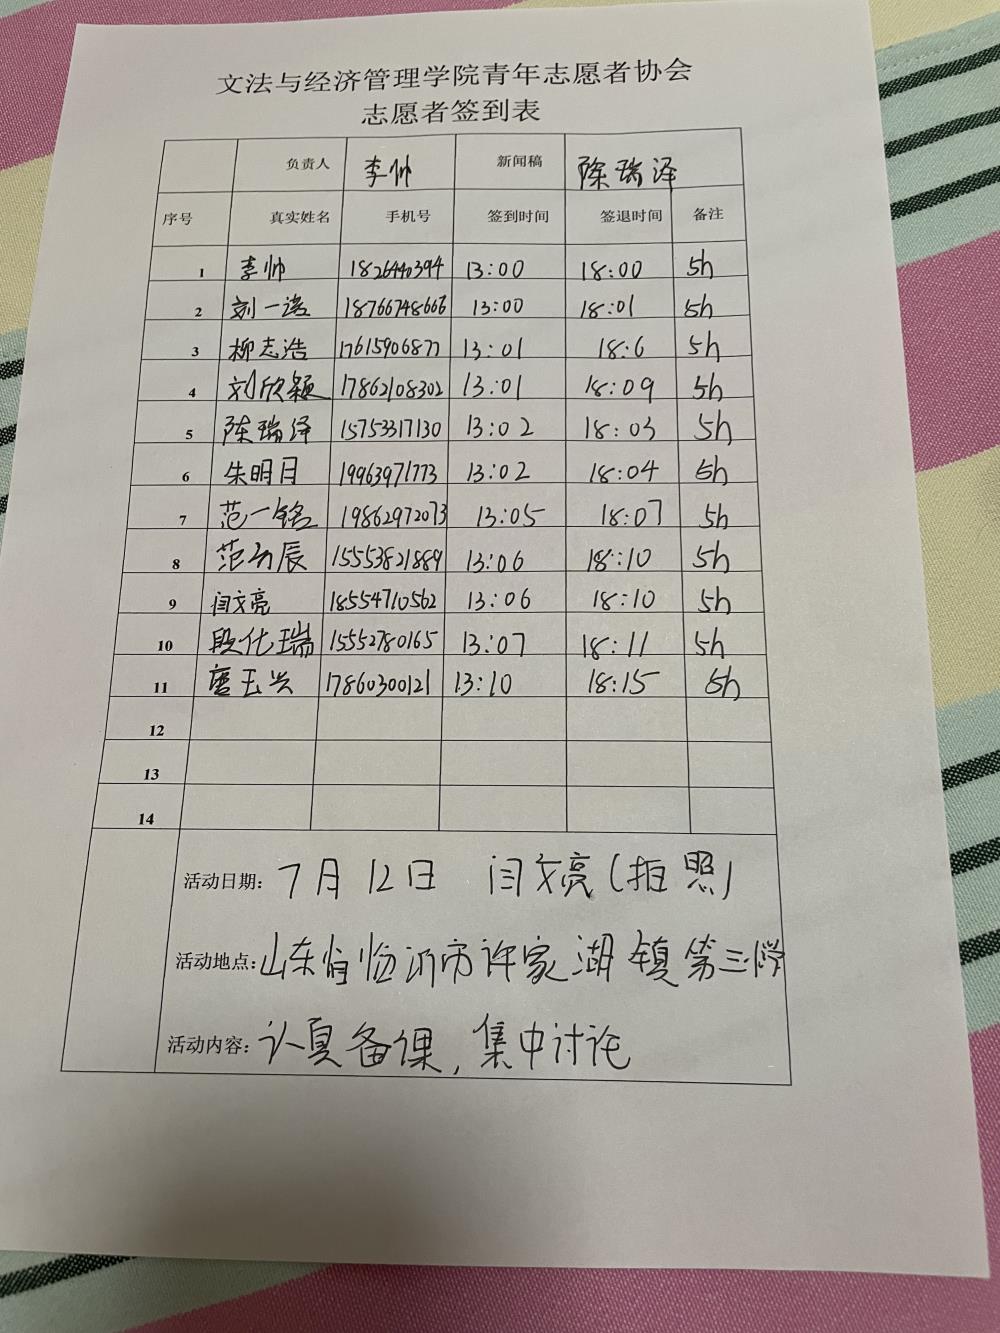 文法与经济管理学院青年志愿者协会
志愿者签到表
负责人 李帅 新闻稿 陈瑞泽
序号 真实姓名 手机号 签到时间 签退时间 备注
1 李帅 1826440394 13:00 18:00 5h
2 刘一诺 18766748666 13:00 18:01 5h
3 柳志浩 17615906877 13:01 18:6 5h
4 刘欣颖 17862108302 13:01 18:09 5h
5 陈瑞泽 15753317130 13:02 18:03 5h
6 朱明月 19963971773 13:02 18:04 5h
7 范一铭 19862972073 13:05 18:07 5h
8 范 辰 15553821889 13:06 18:10 5h
9 闫文亮 18554710562 13:06 18:10 5h
10 段化瑞 15552780165 13:07 18:11 5h
11 唐玉兴 17860300121 13:10 18:15 5h
12
13
14
活动日期: 7月12日 闫文亮(拍照)
活动地点: 山东省临沂市许家湖镇第三小学
活动内容: 认真备课,集中讨论